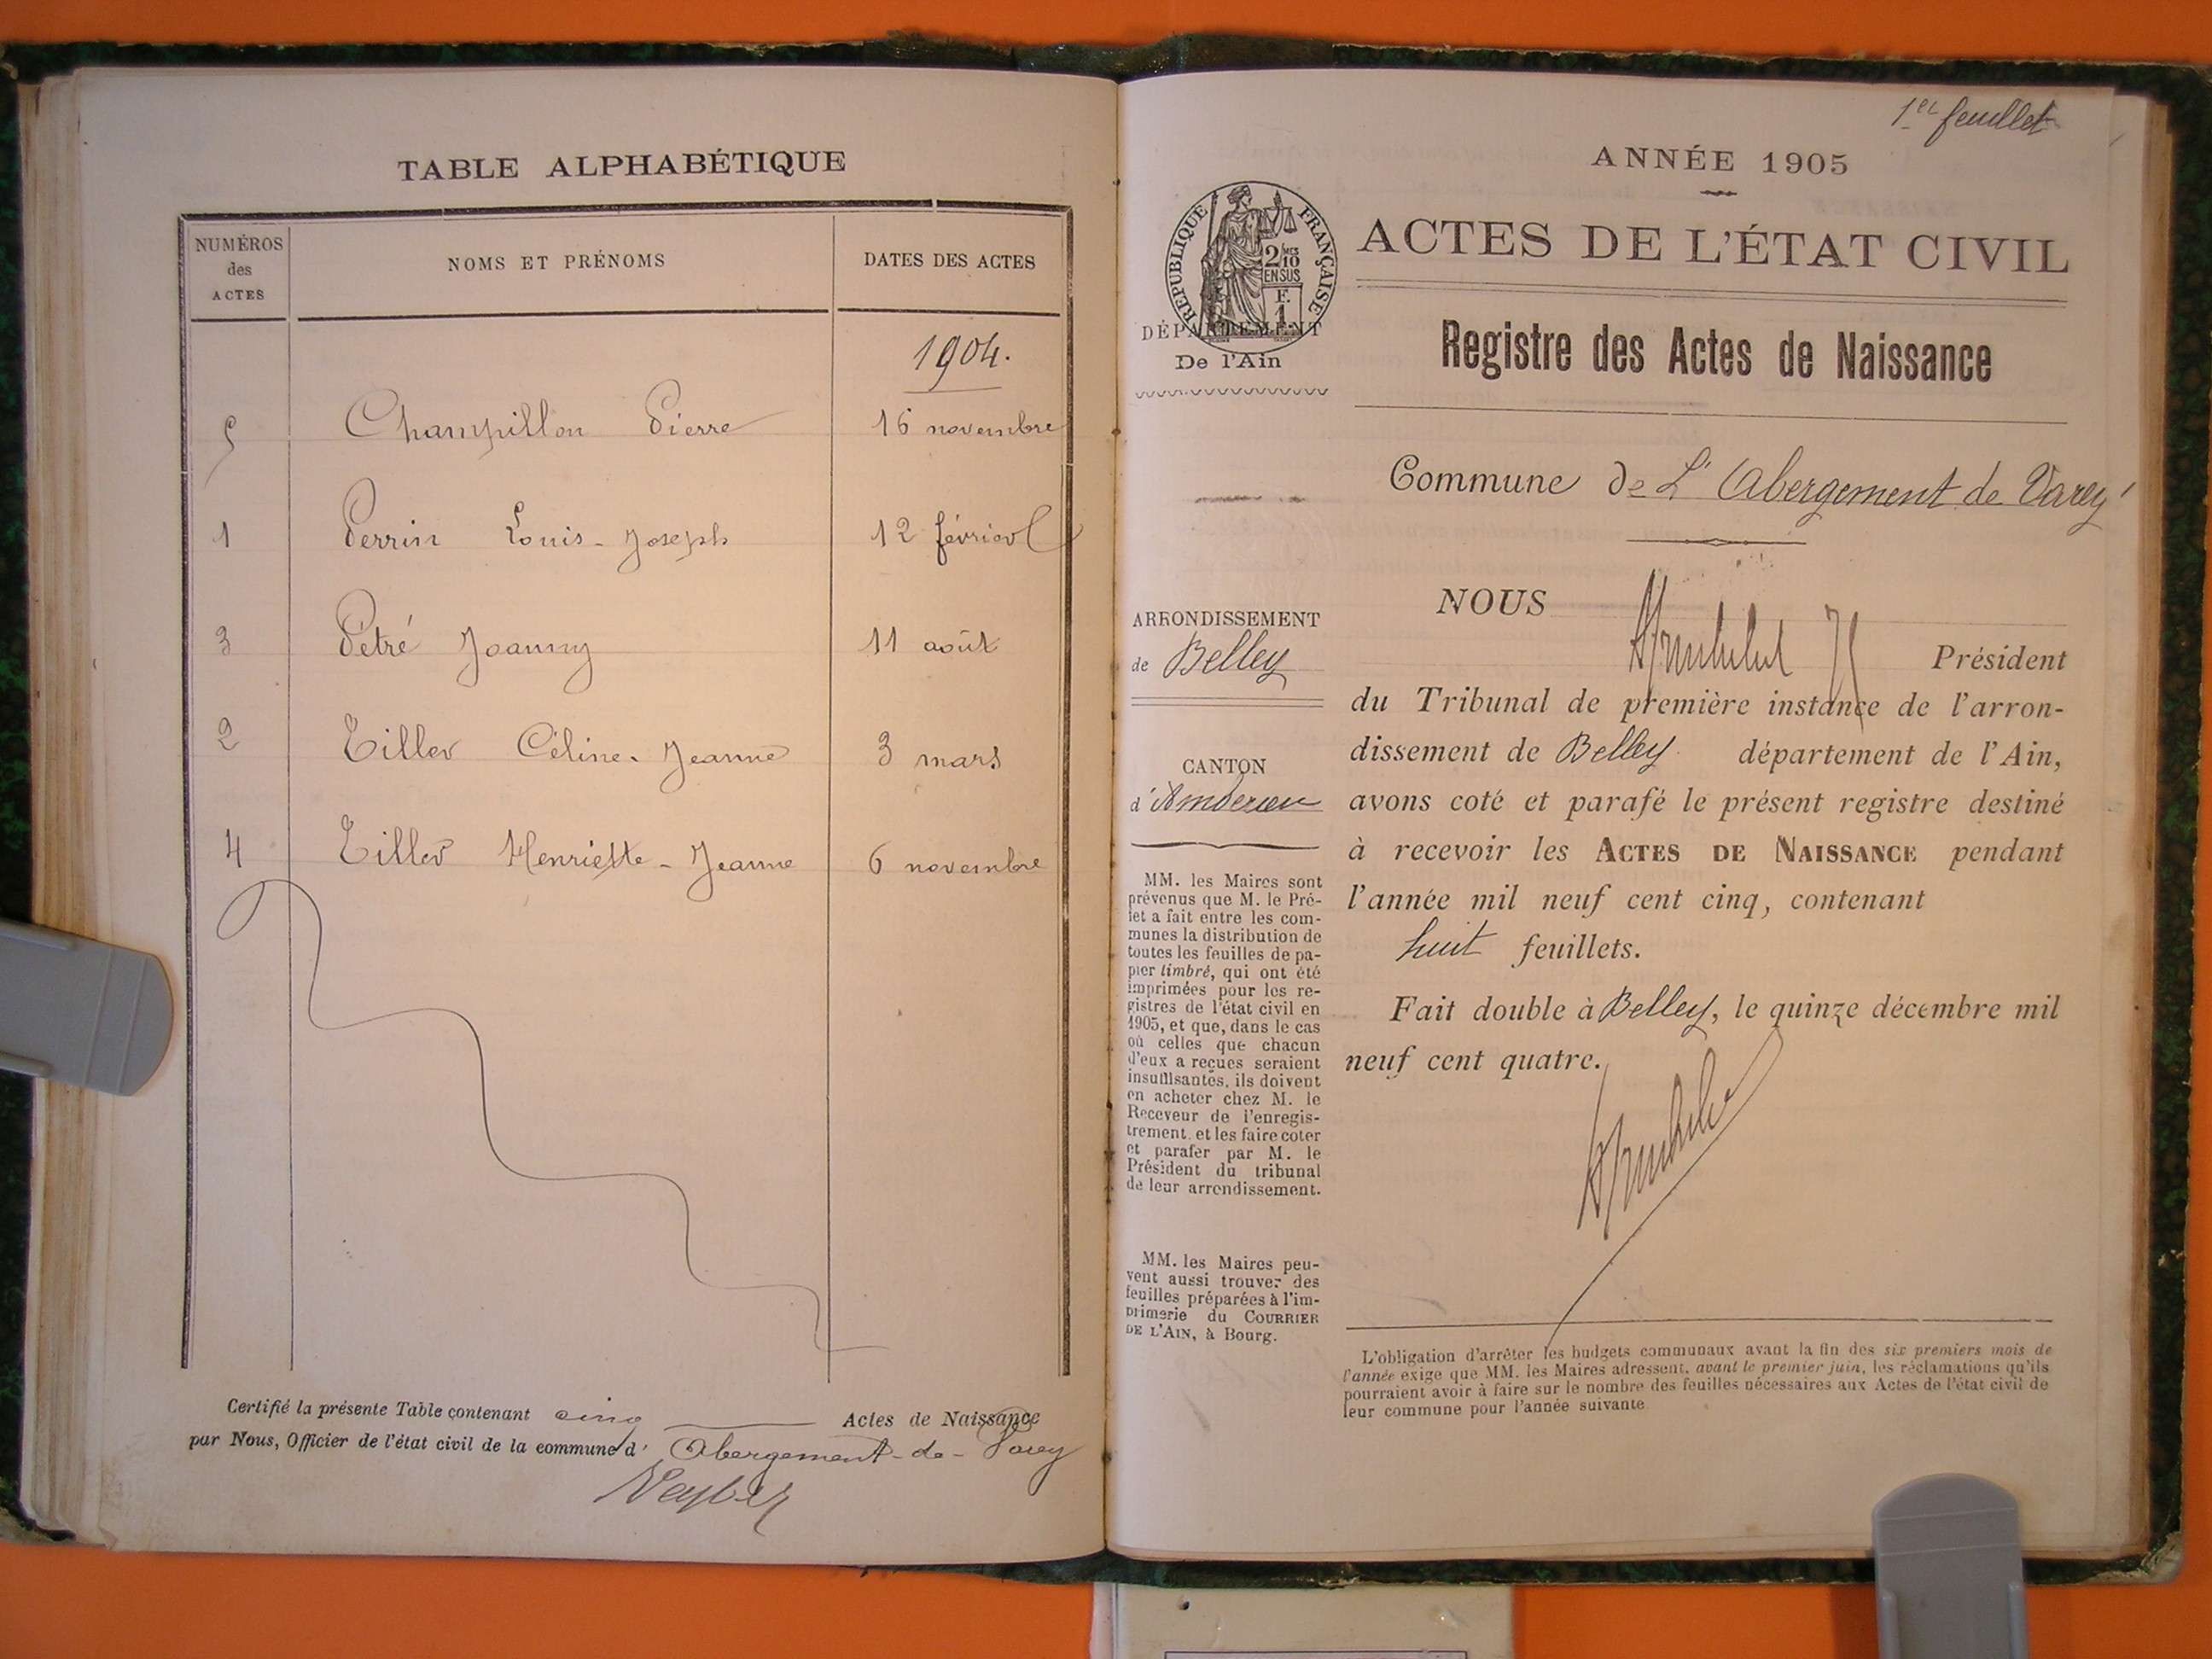 TABLE ALPHABÉTIQUE
NUMÉROS des ACTES
NOMS ET PRÉNOMS
DATES DES ACTES
1904.
5 Champillon Pierre 16 novembre
1 Perrin Louis-Joseph 12 février
3 Pétré Joanny 11 août
2 Tiller Céline-Jeanne 3 mars
4 Tiller Henriette-Jeanne 6 novembre
Certifié la présente Table contenant cinq Actes de Naissance
par Nous, Officier de l'état civil de la commune d' Abergement-de-Varey
1er feuillet
ANNÉE 1905
ACTES DE L'ÉTAT CIVIL
RÉPUBLIQUE FRANÇAISE
2/10 MES
EN SUS
F.
1
DÉPARTEMENT
De l'Ain
Registre des Actes de Naissance
Commune de L'Abergement de Varey
ARRONDISSEMENT
de Belley
CANTON
d'Ambérieu
MM. les Maires sont
prévenus que M. le Pré-
fet a fait entre les com-
munes la distribution de
toutes les feuilles de pa-
pier timbré, qui ont été
imprimées pour les re-
gistres de l'état civil en
1905, et que, dans le cas
où celles que chacun
d'eux a reçues seraient
insuffisantes, ils doivent
en acheter chez M. le
Receveur de l'enregis-
trement, et les faire coter
et parafer par M. le
Président du tribunal
de leur arrondissement.
MM. les Maires peu-
vent aussi trouver des
feuilles préparées à l'im-
primerie du COURRIER
DE L'AIN, à Bourg.
NOUS
Président
du Tribunal de première instance de l'arron-
dissement de Belley département de l'Ain,
avons coté et parafé le présent registre destiné
à recevoir les ACTES DE NAISSANCE pendant
l'année mil neuf cent cinq, contenant
huit feuillets.
Fait double à Belley, le quinze décembre mil
neuf cent quatre.
L'obligation d'arrêter les budgets communaux avant la fin des six premiers mois de
l'année exige que MM. les Maires adressent, avant le premier juin, les réclamations qu'ils
pourraient avoir à faire sur le nombre des feuilles nécessaires aux Actes de l'état civil de
leur commune pour l'année suivante